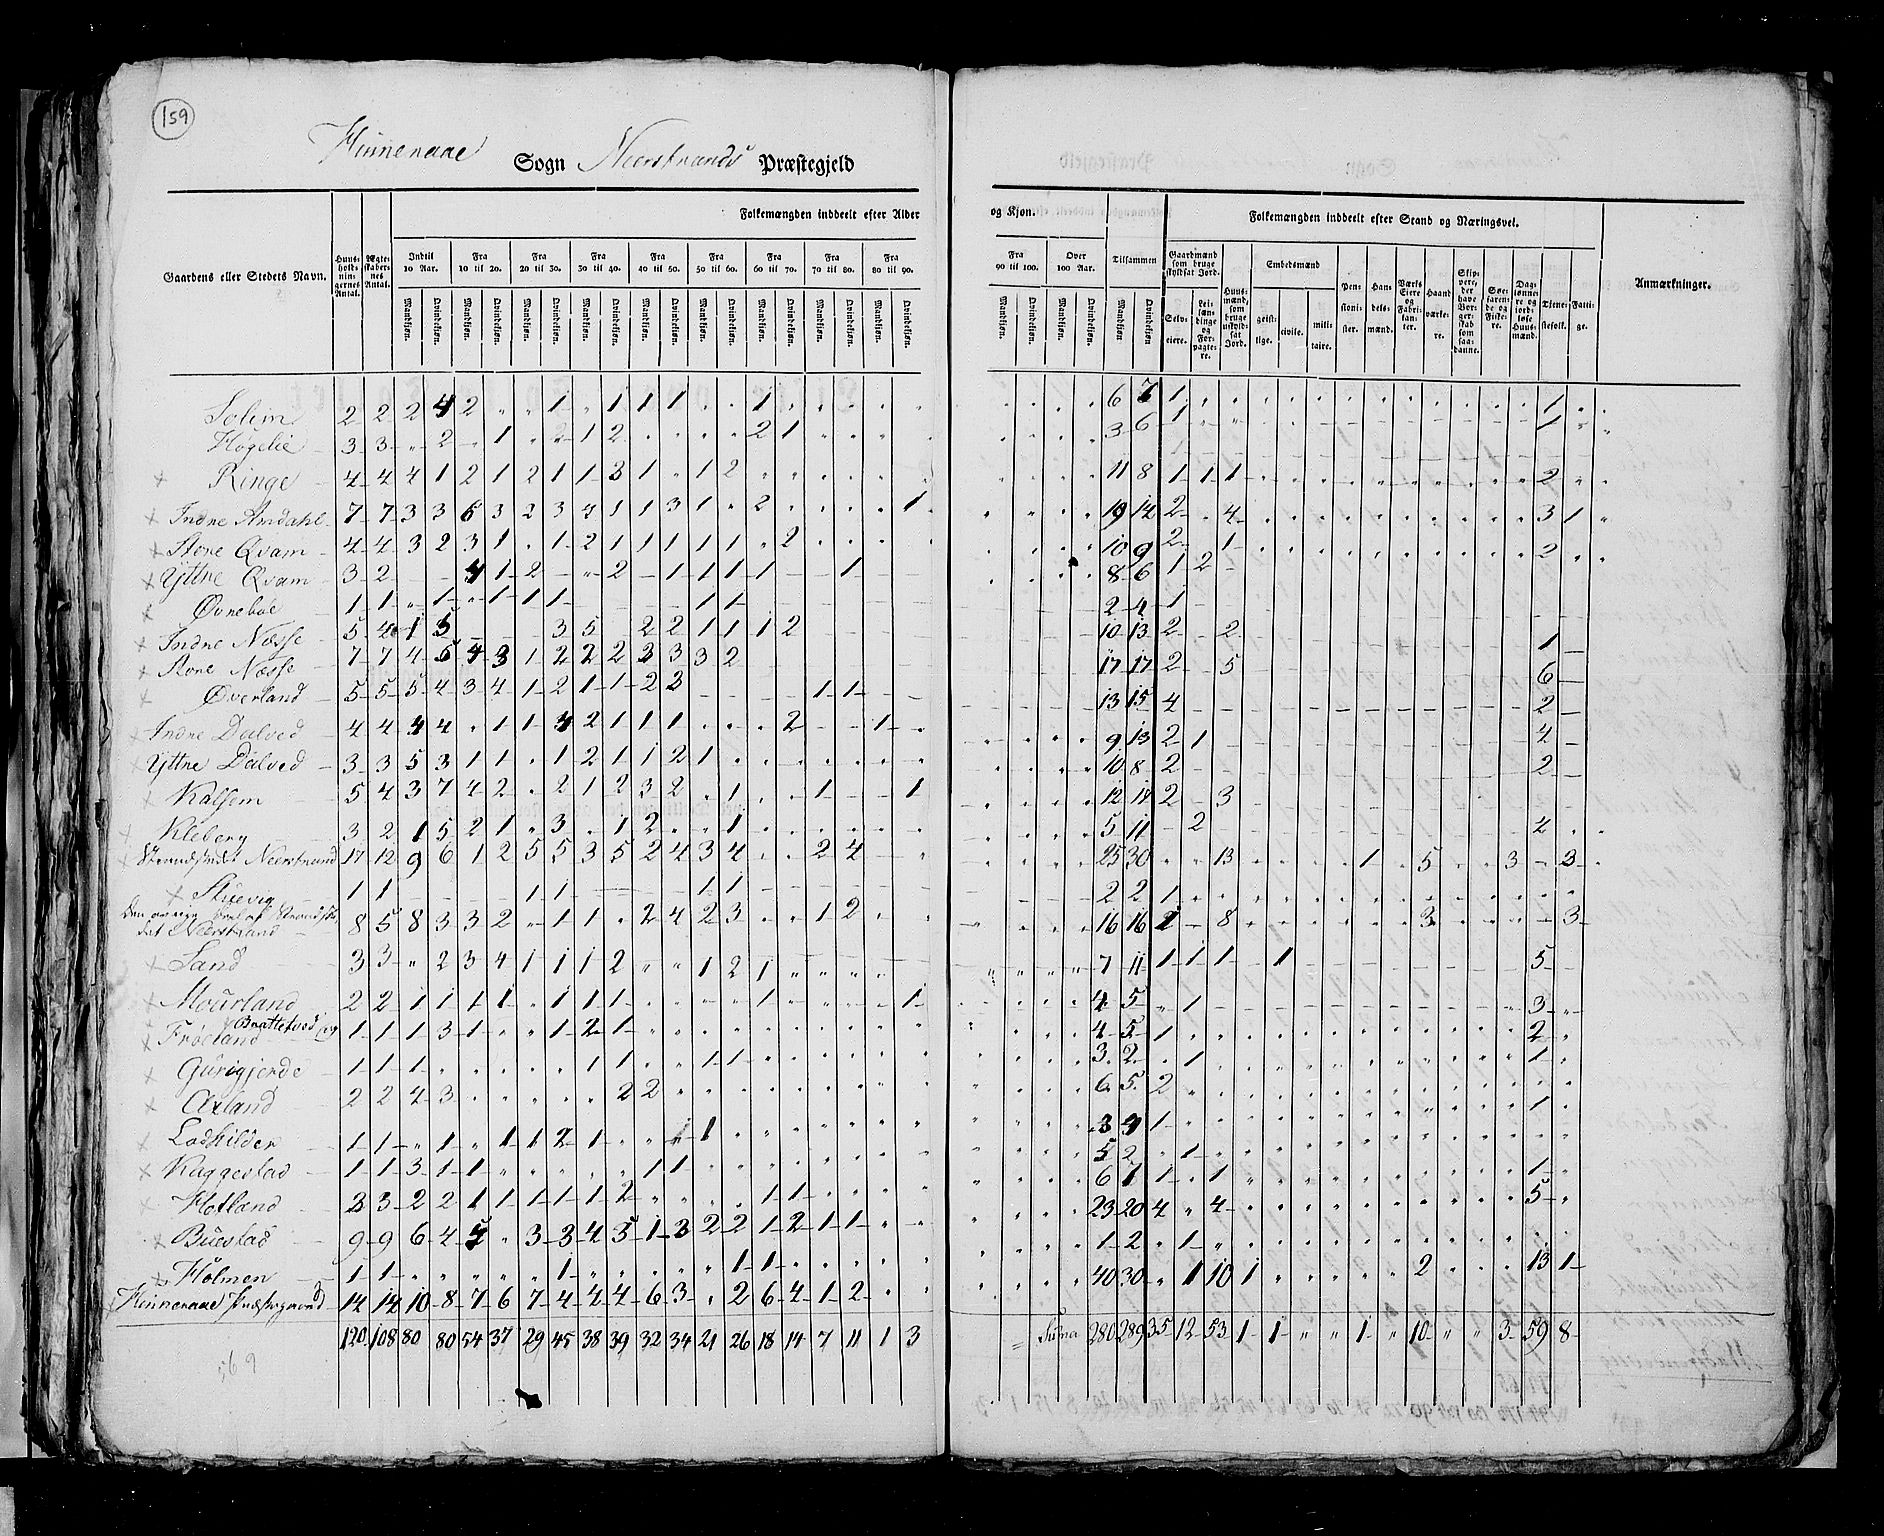 159
Hinneraae Sogn Neerstrands Præstegjeld
Folkemængden inddeelt efter Alder
og Kjøn.
Folkemængden inddeelt efter Stand og Næringsvei.
Gaardens eller Stedets Navn.
Huus-holdnin-gernes Antal.
Ægte-skaber-nes Antal.
Indtil 10 Aar.
Fra 10 til 20.
Fra 20 til 30.
Fra 30 til 40.
Fra 40 til 50.
Fra 50 til 60.
Fra 60 til 70.
Fra 70 til 80.
Fra 80 til 90.
Fra 90 til 100.
Over 100 Aar.
Tilsammen
Mandkjøn. Qvindekjøn.
Gaardmænd som bruge skyldsat Jord.
Selv-eiere.
Lei-læn-dinge og For-pagte-re.
Huus-mænd, som bruge uskyld-sat Jord.
Embedsmænd
geist-lige.
civile.
mili-taire.
Pen-sioni-ster.
Han-dels-mænd.
Værks Eiere og Fabri-kan-ter.
Haand-værke-re.
Skip-pere, der have Bor-ger-skab som saa-danne.
Søe-faren-de og Fiske-re.
Dag-lønne-re og jord-løse Huus-mænd.
Tjene-stefolk.
Fatti-ge.
Anmærkninger.
Solem 2 2 2 4 2 " " 1 " 1 1 1 " " 1 6 7 1 1
Høgelie 3 3 " 2 " 1 " 2 1 2 " " " " 2 1 3 6 1 1
Ringe 4 4 4 1 2 1 2 1 1 3 1 " 1 2 11 8 1 1 1 2
Indre Amdahl 7 7 3 3 6 3 2 3 4 1 1 3 1 " 2 1 19 14 2 4 3 1
Store Qvam 4 4 3 2 3 1 " 1 2 1 1 1 1 1 " 2 10 9 2 1 2
Yttre Qvam 3 2 4 1 2 " 2 1 1 1 1 1 8 6 1 2
Øvreboe 1 1 " 1 " 1 1 1 1 1 2 4 1
Indre Næsse 5 4 1 5 3 5 2 2 1 1 1 2 10 13 2 2 1
Store Næsse 7 7 4 5 4 3 1 2 2 2 3 3 3 2 17 17 2 5 6
Øverland 5 5 5 4 3 4 1 2 1 1 2 3 1 1 13 15 4 2
Indre Dalved 4 4 4 4 " 1 1 4 2 1 1 1 2 1 9 13 2 1 4
Yttre Dalved 3 3 5 3 1 1 " 1 2 1 1 2 1 10 8 2 2
Kalsem 5 4 3 7 4 2 " 2 1 2 3 2 " 1 1 1 12 17 2 3
Kleberg 3 2 1 5 2 1 " 3 " 1 2 " " 1 5 11 2 4
Strandsidet Neerstrand 17 12 9 6 1 2 5 5 3 5 2 4 3 4 2 4 25 30 13 1 5 3 3
Stuevig 1 1 1 1 1 1 2 2 1
Neerstrand 8 5 8 3 3 2 " 1 1 " 2 4 2 3 1 2 16 16 1 8 3 3
Sand 3 3 " 2 3 4 1 1 1 2 " " 1 2 1 7 11 1 1 1 1 5
Mourland 2 2 1 1 1 1 " 1 1 1 1 1 4 5 1 3
Brattetved og
Frøeland 1 1 1 3 1 " " 1 2 1 4 5 1 2
Gurigjerde 1 1 1 1 1 1 1 3 2 1 1
Axland 2 2 4 3 2 2 6 5 2
Lodhilder 1 1 " 1 " 1 1 2 1 1 1 3 4 1 1
Kaggestad 1 1 3 1 1 1 1 5 2 1
Hotland 3 3 2 2 1 1 1 1 1 2 1 1 6 7 1 1 1
Buestad 9 9 6 4 5 " 3 3 4 5 1 3 2 2 1 2 1 1 23 20 4 4 5
Holmen 1 1 1 1 1 1 2 1
Hinneraae Præstegaard 14 14 10 8 7 6 7 4 4 4 6 3 " 2 6 4 1 2 40 30 " 1 10 1 2 13 1
120 108 80 80 54 37 29 45 38 39 32 34 21 26 18 14 7 11 1 3
= Suma 280 289 35 12 53 1 1 " " 1 " 10 " " 3 59 8
569